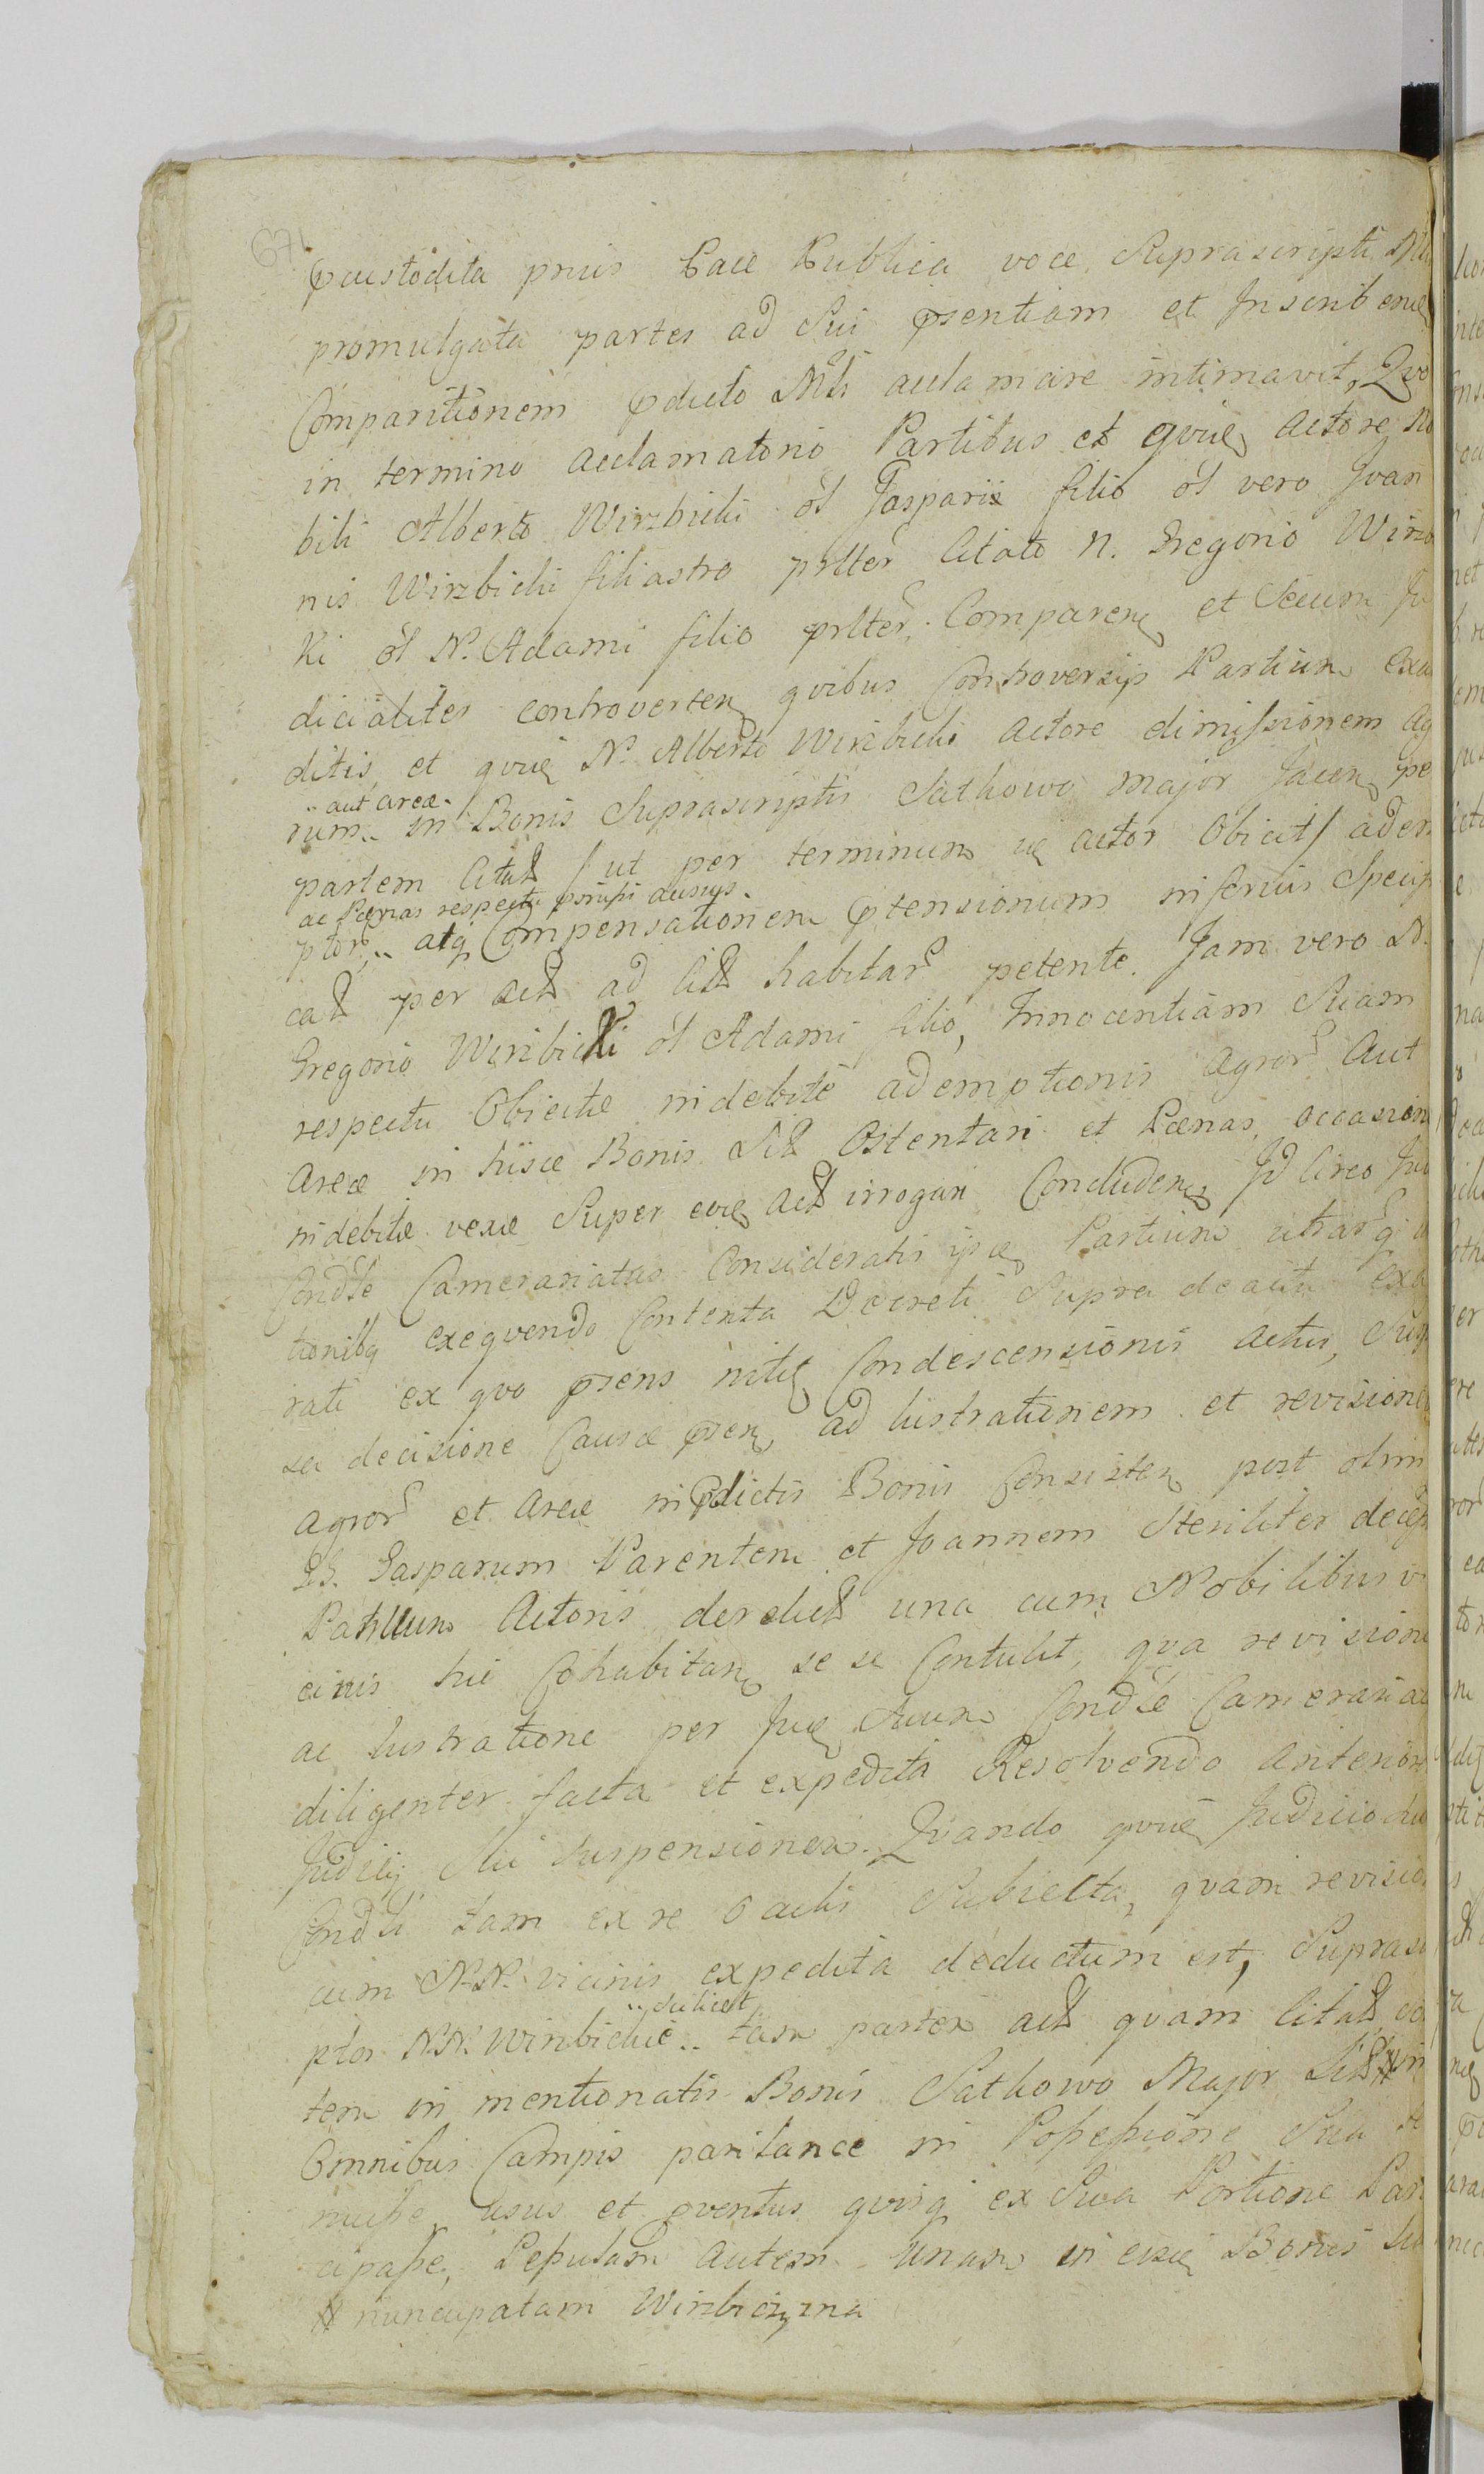 671
pcustodita prius Pace Publica voce Suprascripti Mi
promulgata partes ad Sui psentiam et Inscriben
Comparitionem pdicto Mli acclamare intimavit, Quo
in termino acclamatorio Partibus et quidẽ Actore No
bili Alberto Wirzbicki ol Gasparis filio ol vero Joan
nis Wirzbicki filiastro prlter Citato N. Gregorio Wirzb
ki ol N. Adami filio prlter Comparen et Secum Ju
dicialiter controverten quibus Controversijs Partium exau
ditis, et quidẽ N. Alberto Wirzbicki Actore dimissionem Ag
.. aut areæ.
rum.. in Bonis Suprascriptis Sathowo Major Jacen pe
partem Citat / ut per terminum ex actor Obicit / adem
ac Pœnas respectu pmissi ausus.
ptor,.. atq Compensationem ptensionum inferius Specifi
cat per act ad Cit habitar petente. Jam vero N.
Gregorio Wirzbicki ol Adami filio, Innocentiam Suam
respectu Obiectæ indebitè ademptionis Agror Aut
Areæ in hisce Bonis Sit Ostentari et Pœnas, occasione
indebitæ vexæ Super act irrogari Concluden Id Circo Jud
Condle Camerariatus Consideratis Partium utrarq
tionibq exequendo Contenta Decreti Supra de actu Exa
rati ex quo psens Condescensionis Actus, Susp
sa decisione Causæ psen, ad lustrationem et revisione
agror et Areæ in pdictis Bonis Consisten post olim
GG. Gasparum Parentem et Joannem Steriliter decess
Patruum Actoris derelict una cum Nobilibus vi
cinis hic Cohabitan se se Contulit, qua revisione
ac lustratione per Jud Suum Condle Camerariat
diligenter facta et expedita Resolvendo anteriore
Judicij Sui Suspensionem. Quando quidẽ Judicio hic
Condli tam ex re Oculis Subiecta, quam revisio
cum N.N. vicinis expedita deductum est, Suprasc
.. scilicet
ptos N.N. Wirzbickie.. tam partem act quam Citat
tem in mentionatis Bonis Sathowo Major Sit in
Omnibus Campis paritance in Possessione Sua
nuisse usus et pventus quisq ex Sua Portione Par
cipasse, Sepulam autem Unam in eisdẽ Bonis
nuncupatam Wirzbiczyzna